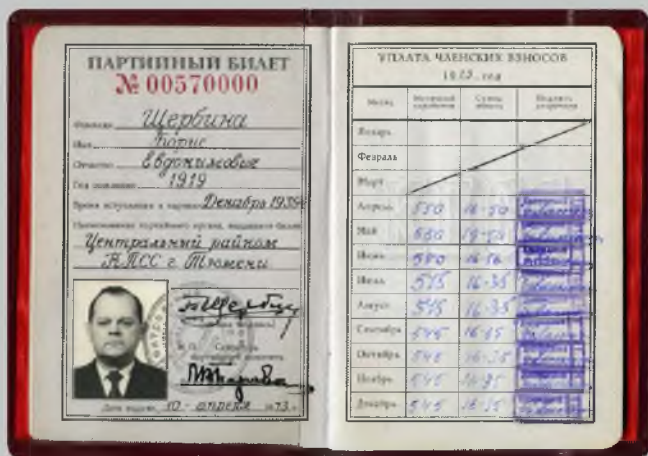 ПАРТИЙНЫЙ БИЛЕТ
№ 00570000
Фамилия Щербина
Имя Борис
Отчество Евдокимович
Год рождения 1919
Время вступления в партию Декабрь 1939
Наименование партийного органа, выдавшего билет
Центральный райком
КПСС г. Тюмени
М. П. Секретарь
Дата выдачи 10 апреля 1973 г.
УПЛАТА ЧЛЕНСКИХ ВЗНОСОВ
1973 год
Месяц Месячный заработок Сумма взноса Подпись секретаря
Январь
Февраль
Март
Апрель 550 16-50
Май 550
Июнь 550 16-50
Июль 545 16-35
Август 545 16-35
Сентябрь 545
Октябрь 545
Ноябрь 545
Декабрь 545